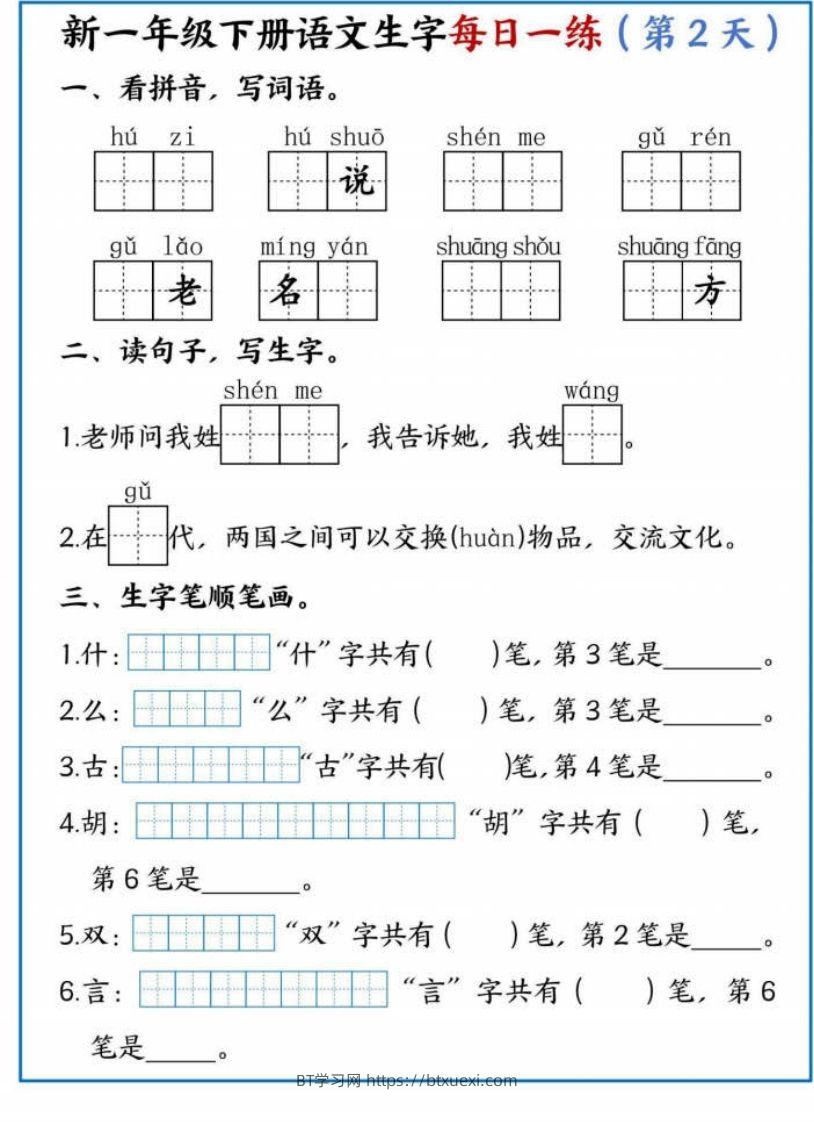 新一年级下册语文生字每日一练（第2天）
一、看拼音，写词语。
hú zi hú shuō shén me gǔ rén
说
gǔ lǎo míng yán shuāng shǒu shuāng fāng
老 名 方
二、读句子，写生字。
shén me wáng
1.老师问我姓 ，我告诉她，我姓 。
gǔ
2.在 代，两国之间可以交换(huàn)物品，交流文化。
三、生字笔顺笔画。
1.什： “什”字共有( )笔，第3笔是_______。
2.么： “么”字共有( )笔，第3笔是_______。
3.古： “古”字共有( )笔，第4笔是_______。
4.胡： “胡”字共有( )笔，
第6笔是_______。
5.双： “双”字共有( )笔，第2笔是_____。
6.言： “言”字共有( )笔，第6
笔是_____。
BT学习网 https://btxuexi.com